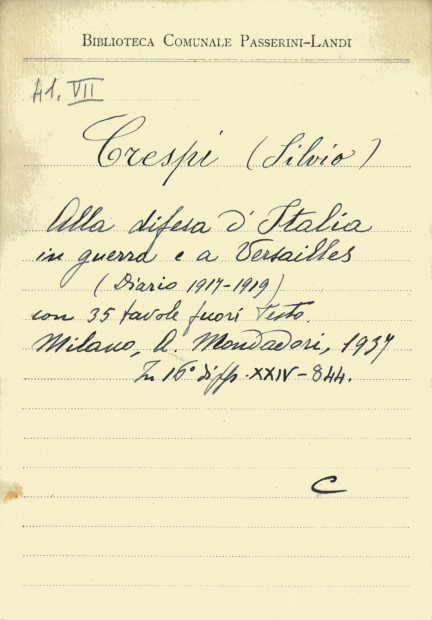 BIBLIOTECA COMUNALE PASSERINI-LANDI
41. VII
Crespi (Silvio)
Alla difesa d'Italia
in guerra e a Versailles
(Diario 1917-1919)
con 35 tavole fuori testo.
Milano, A. Mondadori, 1937
In 16° di pp. XXIV-844.
C